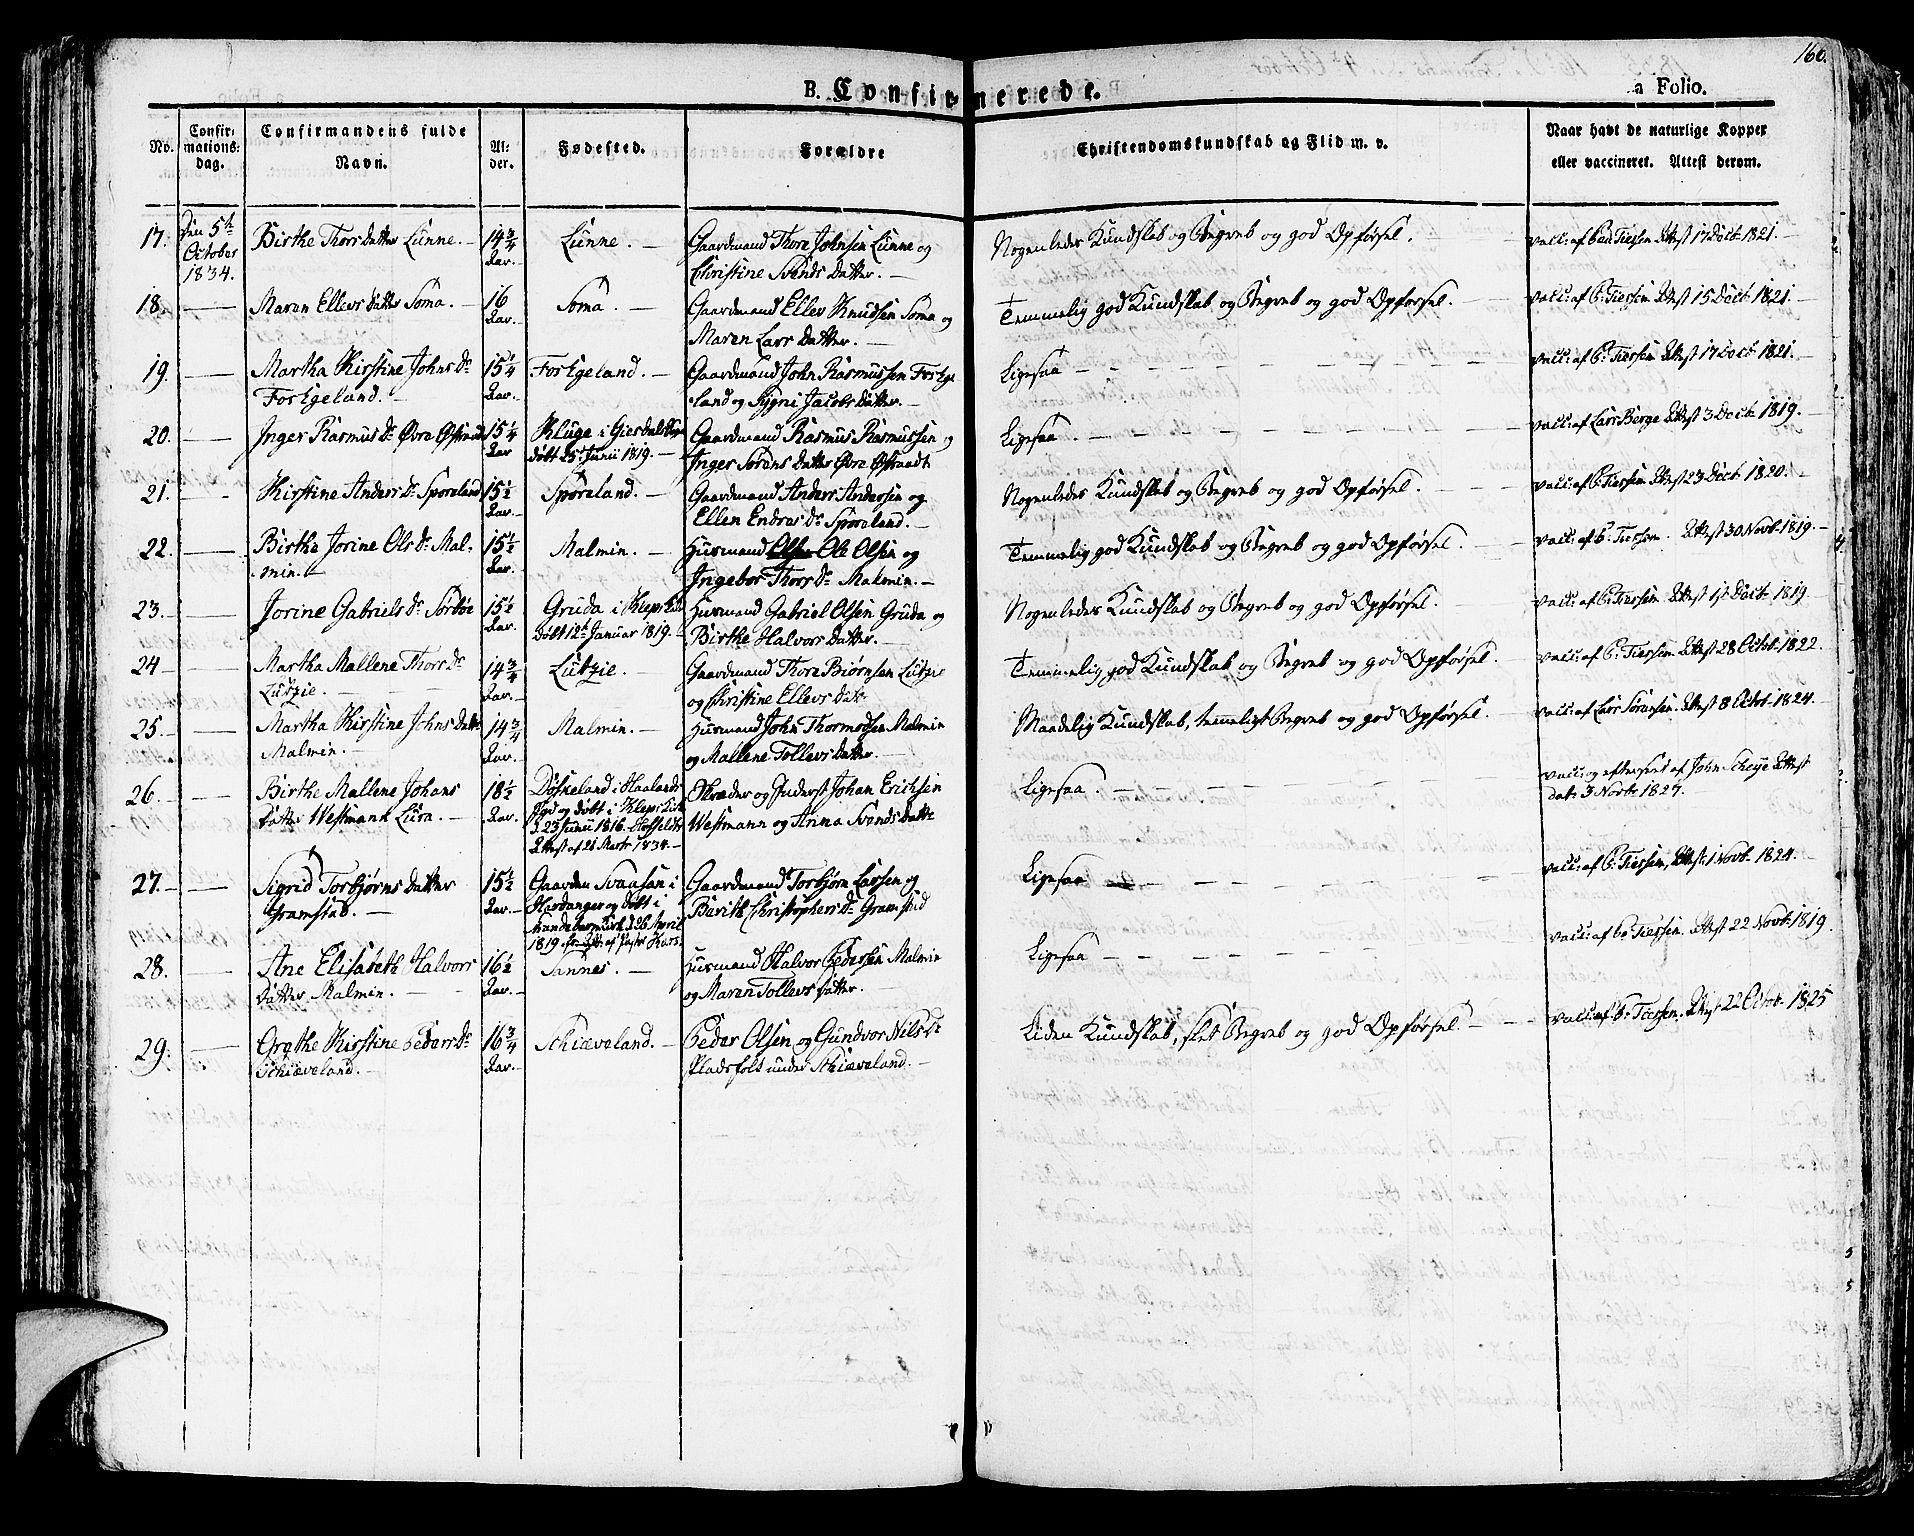 160.
B. Confirmerede.
a Folio.
No.
Confir-
mations-
dag.
Confirmandens fulde
Navn.
Al-
der.
Fødested.
Forældre
Christendomskundskab og Flid m. v.
Naar havt de naturlige Kopper
eller vaccineret. Attest derom.
17. Den 5te October 1834. Birthe Thors Datter Lunne. 14 3/4 Aar. Lunne. Gaardmand Thore Johnsen Lunne og Nogenledes Kundskab og Begreb og god Opførsel. vacc: af Tiessen Attest 17 Dect 1821.
Christine Svends Datter.
18. Maren Ellevs Datter Soma. 16 Aar. Soma. Gaardmand Ellev Knudsen Soma og Temmelig god Kundskab og Begreb og god Opførsel. vacc: af P: Tiessen Attest 15 Dect 1821.
Maren Lars Datter.
19. Martha Kirstine Johns Dr 15 1/4 Aar. Forsgeland. Gaardmand John Rasmussen Ligesaa vacc: af P: Tiessen Attest 17 Dect 1821.
land og Jacobs Datter.
20. Inger Rasmus Dr Øvre 15 1/4 Aar Kluge i Giesdal Gaardmand Rasmus Rasmussen og Ligesaa vacc: af Lars Berge Attest 3 Dect 1819.
døbt 25 Junii 1819. Inger Sørens Datter Øvre
21. Kirstine Anders Dr Sporeland 15 1/2 Aar. Sporeland. Gaardmand Anders Andersen og Nogenledes Kundskab og Begreb og god Opførsel. vacc: af P: Tiessen Attest 23 Dect 1820.
Ellen Endres Dr Sporeland.
22. Birthe Jorine Ols Dr Mal- 15 1/2 Aar. Malmin. Huusmand Ole Olsen og Temmelig god Kundskab og Begreb og god Opførsel. vacc: af P: Tiessen. Attest 30 Novb. 1819.
min. Ingebor Thors Dr Malmin.
23. Jorine Gabriels Dr Sørbøe 15 1/2 Aar. Gruda i Klep Huusmand Gabriel Olsen Gruda og Nogenledes Kundskab og Begreb og god Opførsel. vacc: af P: Tiessen. Attest Dect 1819.
Døbt 12te Januar 1819. Birthe Halvors Datter.
24 Martha Mallene Thors Dr 14 3/4 Aar. Lutzie. Gaardmand Thore Biørnsen Lutzie Temmelig god Kundskab og Begreb og god Opførsel. vacc: af P: Tiessen. Attest 28 Octbr. 1822.
Lutzie. og Christine Ellevs Datr
25. Martha Kirstine Johns Datr 14 3/4 Aar. Malmin. Huusmand John Thormodsen Malmin Maadelig Kundskab, temmeligt Begreb og god Opførsel. vacc: af Lars Sørensen. Attest 8 Octbr. 1824.
Malmin. og Mallene Tollevs Datter.
26. Birthe Mallene Johans 18 1/2 Aar. i Haalands Skræder og Inderst Johan Erichsen Ligesaa. vacc: og efterseet af John Scheie Attest
Datter Westmann Lura. og døbt i Kleps Kirke Westmann og Anna Svends Datr dat: 3 Novbr 1827.
d. 23 Junii 1816.
Attest af 21 Marts 1834.
27. Sigrid Torbjørns Datter 15 1/2 Aar. Gaarden i Gaardmand Torbjørn Larsen og Ligesaa vacc: af P: Tiessen, Attest 1 Novb. 1824.
Gramstad. Hardanger og døbt i Barith Christophers Dr Gramstad
Kirke d. 26 April
1819
28. Ane Elisabeth Halvors 16 1/2 Aar. Sannes. Huusmand Halvor Pedersen Malmin Ligesaa vacc: af P: Tiessen. Attest 22 Novb. 1819.
Datter Malmin. og Maren Tollevs Datter.
29. Grethe Kirstine Peders Dr 16 3/4 Aar. Schiæveland. Peder Olsen og Gundvor Nils Dr Liden Kundskab, slet Begreb og god Opførsel. vacc: af P: Tiessen. Attest 22 Octob. 1825
Schiæveland. Pladsfolk under Schiæveland.